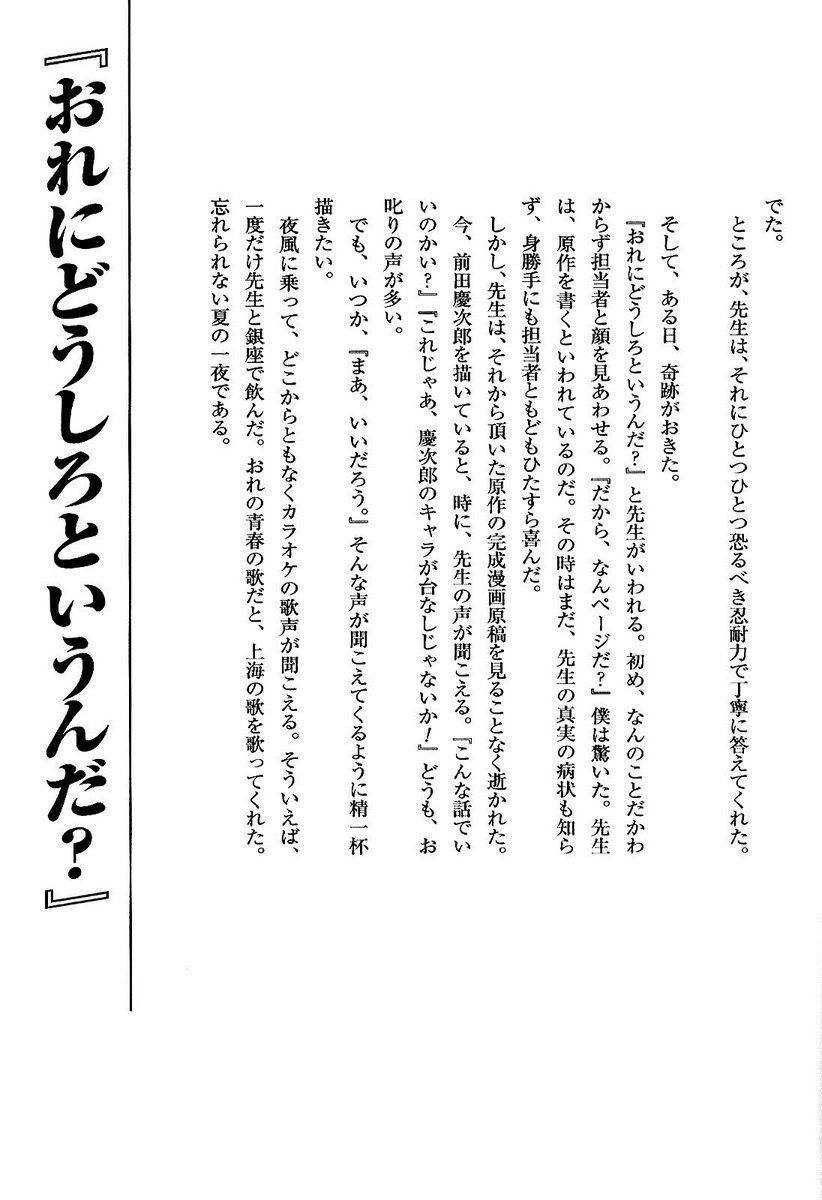 でた。
ところが、先生は、それにひとつひとつ恐るべき忍耐力で丁寧に答えてくれた。
そして、ある日、奇跡がおきた。
『おれにどうしろというんだ？』と先生がいわれる。初め、なんのことだかわ
からず担当者と顔を見あわせる。『だから、なんページだ？』僕は驚いた。先生
は、原作を書くといわれているのだ。その時はまだ、先生の真実の病状も知ら
ず、身勝手にも担当者ともどもひたすら喜んだ。
しかし、先生は、それから頂いた原作の完成漫画原稿を見ることなく逝かれた。
今、前田慶次郎を描いていると、時に、先生の声が聞こえる。『こんな話でい
いのかい？』『これじゃあ、慶次郎のキャラが台なしじゃないか！』どうも、お
叱りの声が多い。
でも、いつか、『まあ、いいだろう。』そんな声が聞こえてくるように精一杯
描きたい。
夜風に乗って、どこからともなくカラオケの歌声が聞こえる。そういえば、
一度だけ先生と銀座で飲んだ。おれの青春の歌だと、上海の歌を歌ってくれた。
忘れられない夏の一夜である。
『おれにどうしろというんだ？』